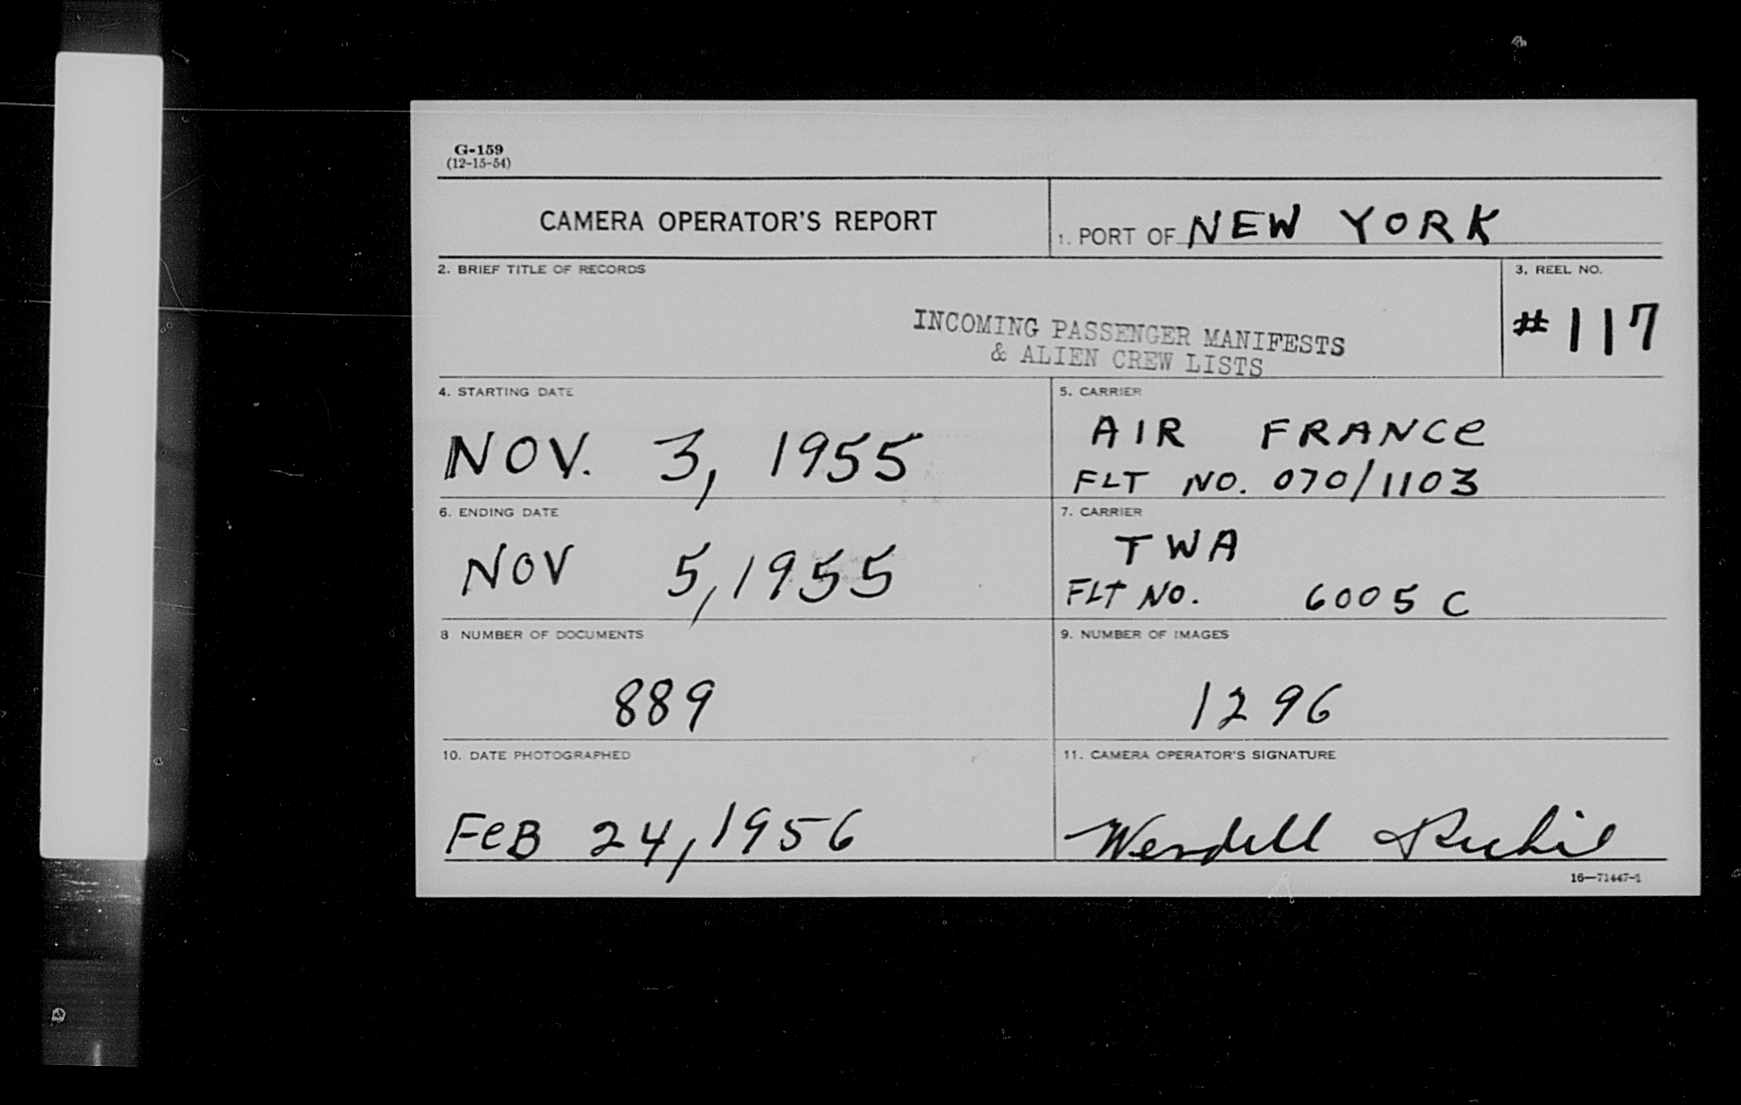 G-159
(12-15-54)
CAMERA OPERATOR'S REPORT
1. PORT OF NEW YORK
2. BRIEF TITLE OF RECORDS
INCOMING PASSENGER MANIFESTS
& ALIEN CREW LISTS
3. REEL NO.
#117
4. STARTING DATE
NOV. 3, 1955
5. CARRIER
AIR FRANCE
FLT NO. 070/1103
6. ENDING DATE
NOV 5, 1955
7. CARRIER
TWA
FLT NO. 6005 C
8 NUMBER OF DOCUMENTS
889
9. NUMBER OF IMAGES
1296
10. DATE PHOTOGRAPHED
FeB 24, 1956
11. CAMERA OPERATOR'S SIGNATURE
Wendell
16—71447-1